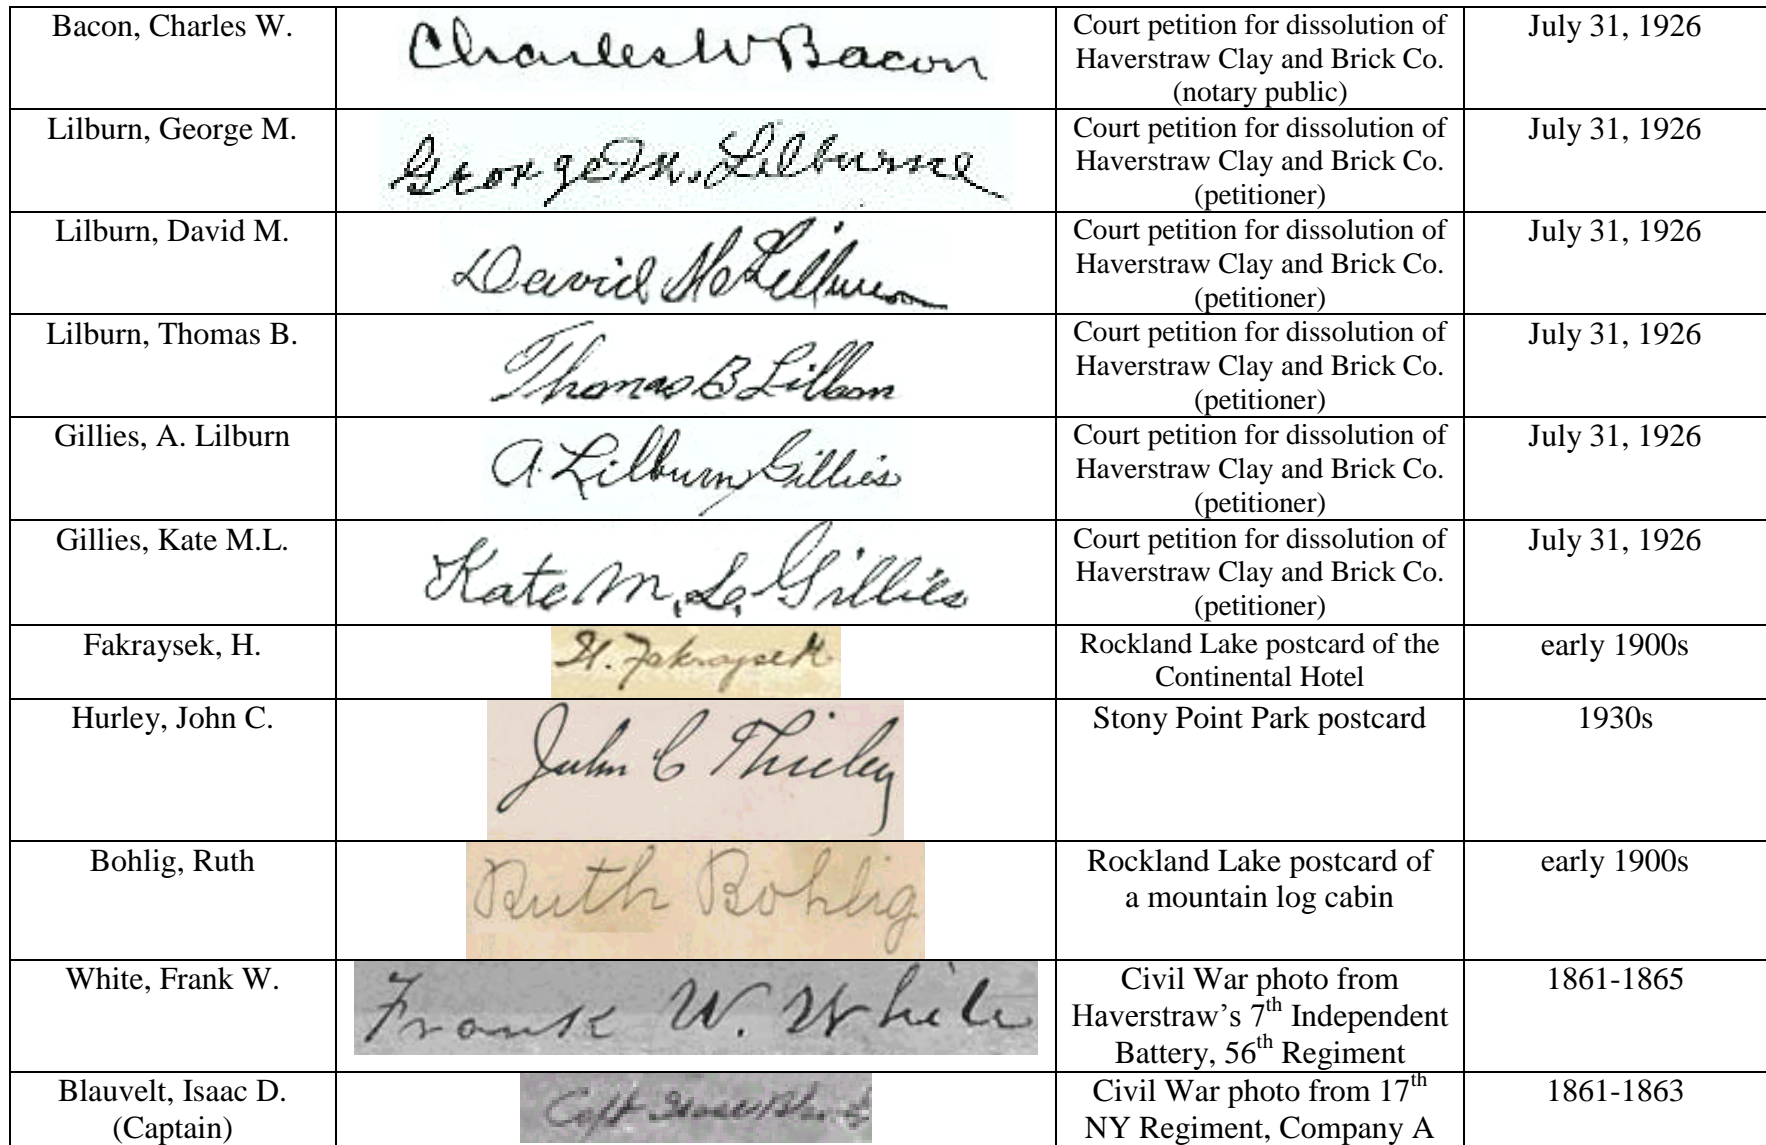 Bacon, Charles W.
Charles W Bacon
Court petition for dissolution of
Haverstraw Clay and Brick Co.
(notary public)
July 31, 1926
Lilburn, George M.
George M. Lilburne
Court petition for dissolution of
Haverstraw Clay and Brick Co.
(petitioner)
July 31, 1926
Lilburn, David M.
David M Lilburn
Court petition for dissolution of
Haverstraw Clay and Brick Co.
(petitioner)
July 31, 1926
Lilburn, Thomas B.
Thomas B Lilburn
Court petition for dissolution of
Haverstraw Clay and Brick Co.
(petitioner)
July 31, 1926
Gillies, A. Lilburn
A. Lilburn Gillies
Court petition for dissolution of
Haverstraw Clay and Brick Co.
(petitioner)
July 31, 1926
Gillies, Kate M.L.
Kate M. L. Gillies
Court petition for dissolution of
Haverstraw Clay and Brick Co.
(petitioner)
July 31, 1926
Fakraysek, H.
H. Fakraysek
Rockland Lake postcard of the
Continental Hotel
early 1900s
Hurley, John C.
John C
Stony Point Park postcard
1930s
Bohlig, Ruth
Ruth Bohlig
Rockland Lake postcard of
a mountain log cabin
early 1900s
White, Frank W.
Frank W. White
Civil War photo from
Haverstraw’s 7th Independent
Battery, 56th Regiment
1861-1865
Blauvelt, Isaac D.
(Captain)
Capt
Civil War photo from 17th
NY Regiment, Company A
1861-1863